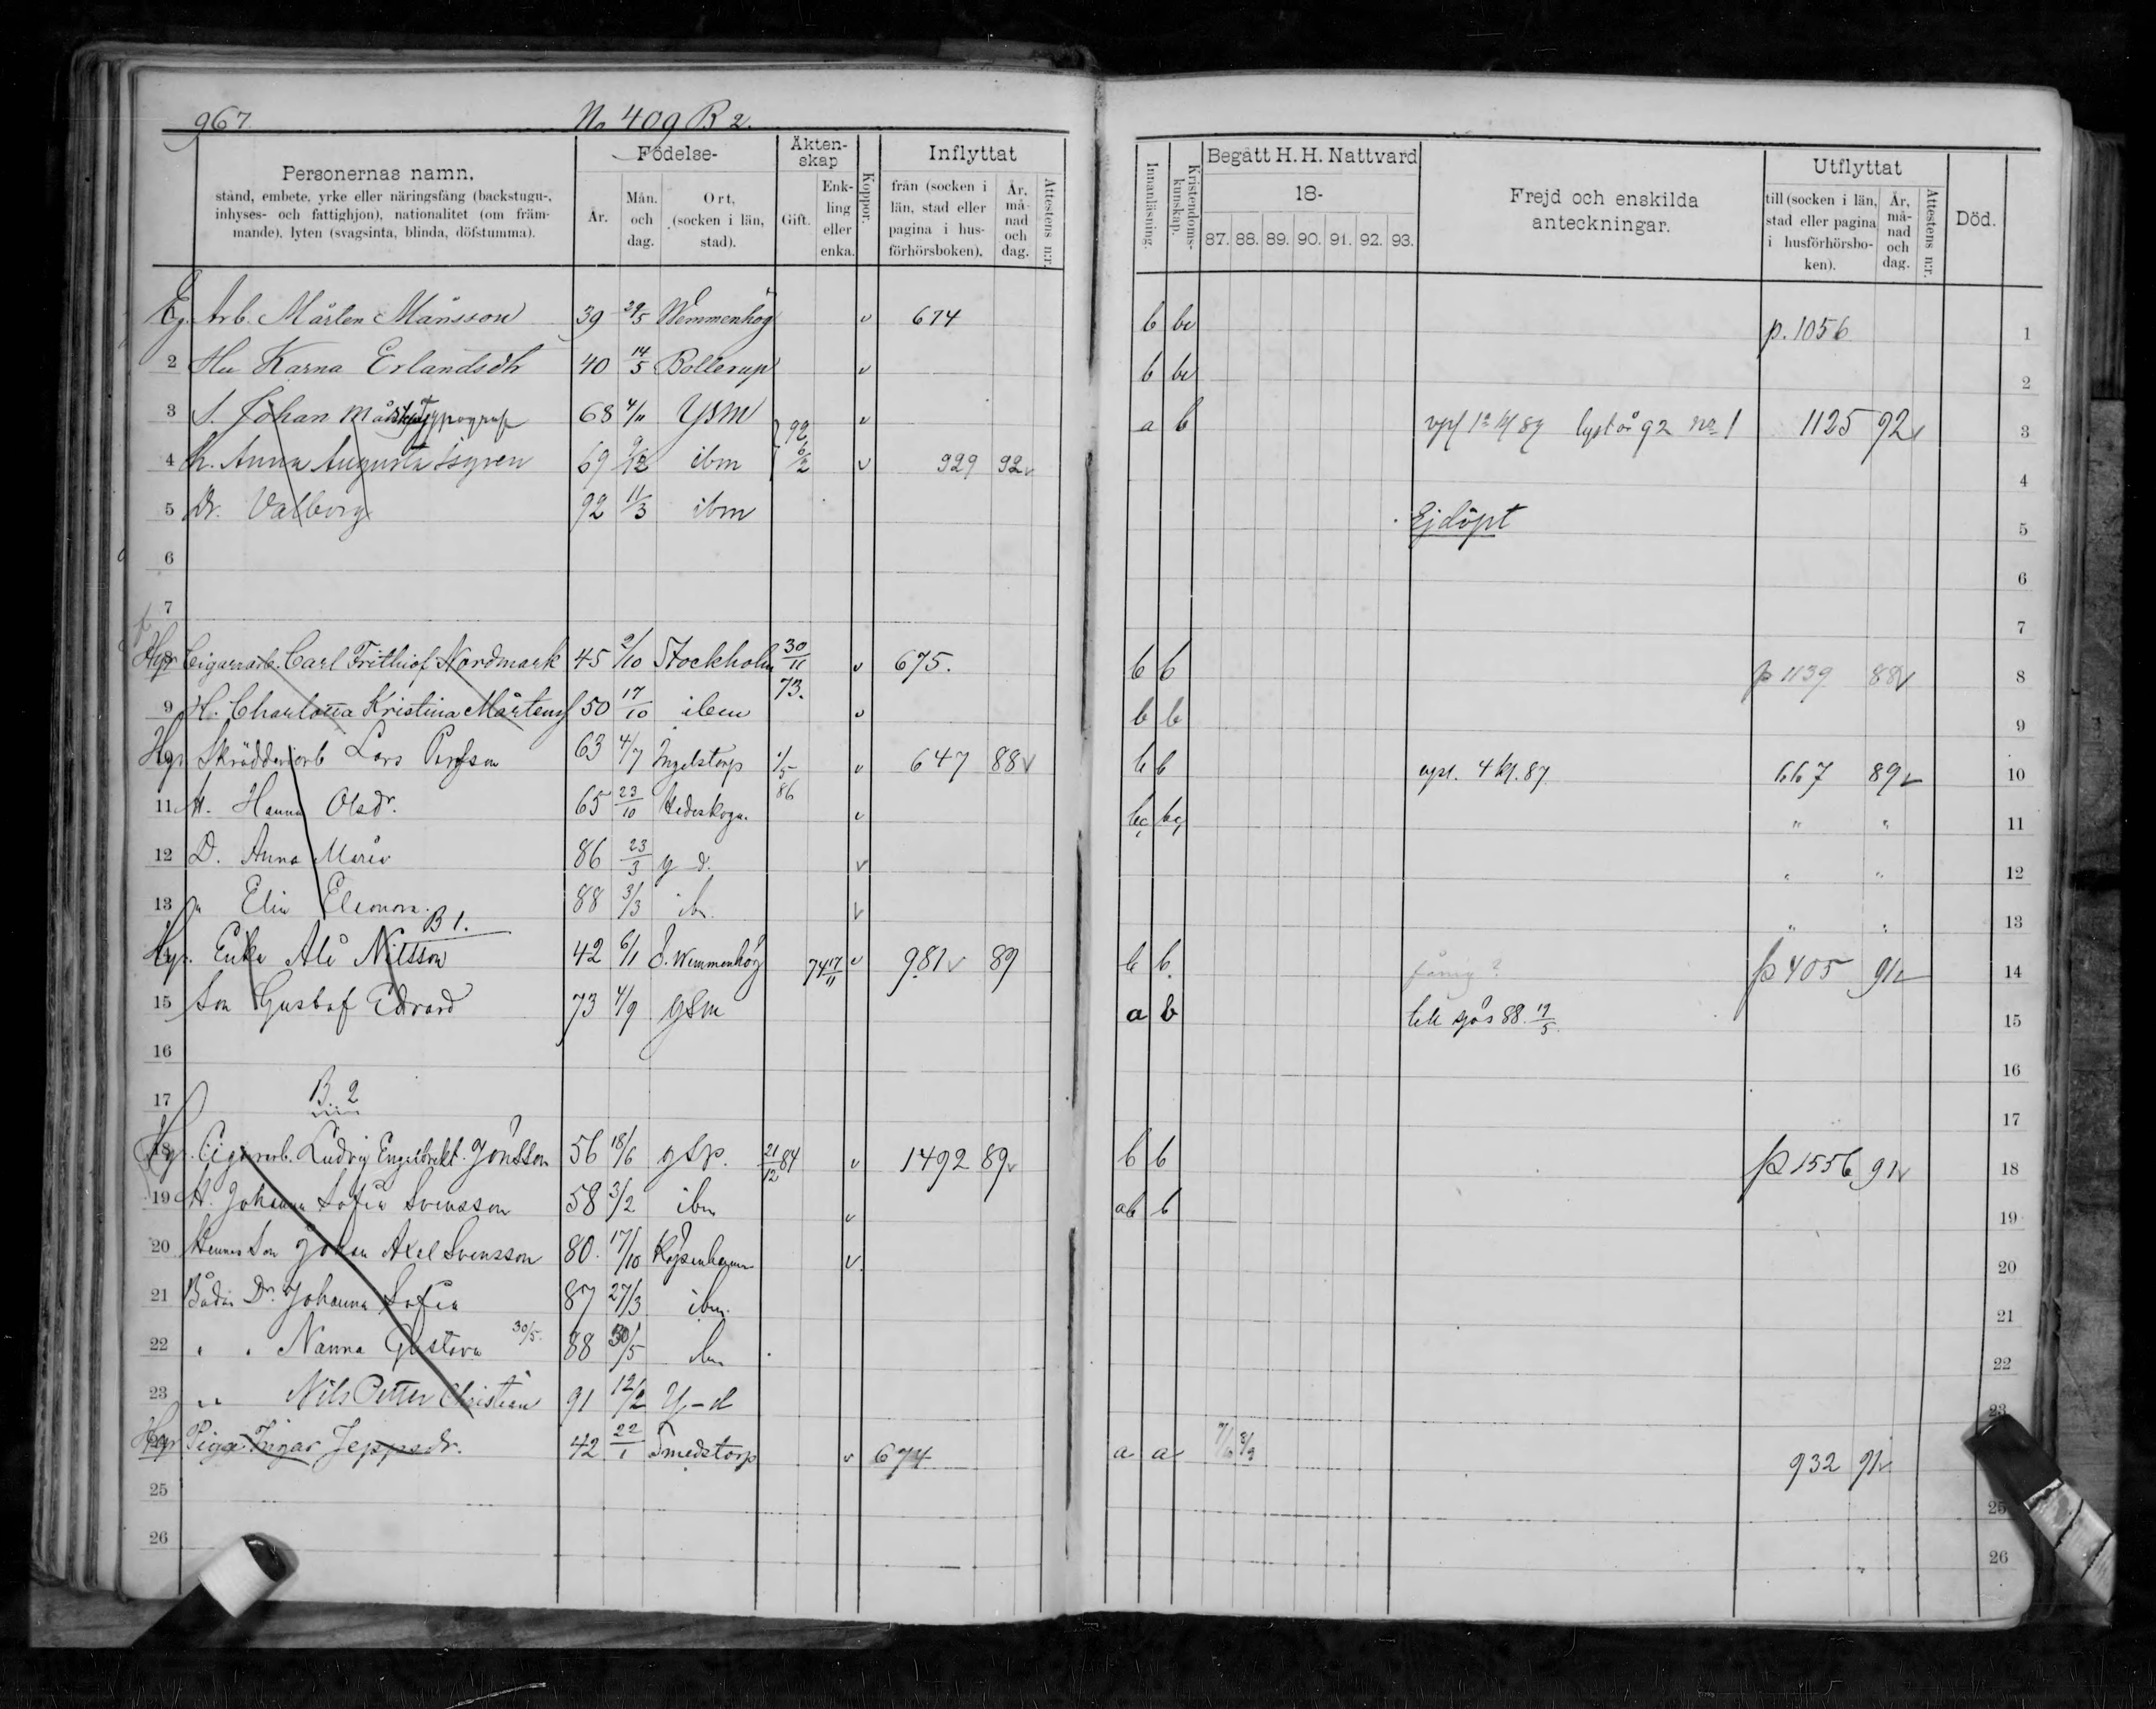 967 No 409 B 2.
Personernas namn, stånd, embete, yrke eller näringsfång (backstugu-, inhyses- och fattighjon), nationalitet (om främmande), lyten (svagsinta, blinda, döfstumma).
Födelse-
År. Mån. och dag. Ort, (socken i län, stad).
Äktenskap
Gift. Enkling eller enka.
Koppor.
Inflyttat
från (socken i län, stad eller pagina i husförhörsboken). År, månad och dag. Attestens n:r.
Innanläsning. Kristendomskunskap.
Begått H. H. Nattvard
18-
87. 88. 89. 90. 91. 92. 93.
Frejd och enskilda anteckningar.
Utflyttat
till (socken i län, stad eller pagina i husförhörsboken). År, månad och dag. Attestens n:r.
Död.
Eg. Arb. Mårten Månsson 39 29/5 Wemmenhög v 674 b bc p. 1056 1
2 Hu Karna Erlandsdr 40 14/5 Bollerup v b bc 2
3 S. Johan typograf 68 4/11 Ysm v a b 92 no 1 1125 92 3
4 h. Anna Augusta 69 9/12 ibm 92 6/2 v 929 92v 4
5 Dr. Valborg 92 11/3 ibm Ej döpt 5
6 6
7 7
Hyr Cigarrarb. Carl Frithiof Nordmark 45 2/10 Stockholm 30/11 73. v 675. b b p 1139 88v 8
9 H. Charlotta Kristina Mårtens 50 17/10 ibm v b b 9
Hyr Skrädderiarb Lars Persson 63 4/7 Ingelstorp 1/5 86 v 647 88v b b vpl. 4 87. 667 89v 10
11 H. Hanna Olsdr. 65 23/10 Hedeskoga. v bc bc " " 11
12 D. Anna Maria 86 23/3 y d. v " " 12
13 " Elin Eleonora. 88 3/3 ib. v " " 13
B 1.
Hyr. Enka Ale Nilsson 42 6/1 Ö. Wemmenhög 74 17/11 v 981v 89 b b fånig? p 405 91v 14
15 Son Gustaf Edvard 73 4/9 ysm a b till sjös 88. 17/5. 15
16 16
17 B. 2 17
Hyr. Cigararb. Ludvig Engelbrekt Jönsson 56 18/6 ysp. 21/12 84 v 1492 89v b b p 1556 91v 18
19 H. Johanna Sofia Svensson 58 3/2 ibm v ab b 19
20 Hennes Son Johan Axel Svensson 80. 17/10 Köpenhamn v 20
21 Bådas Dr. Johanna Sofia 87 27/3 ibm. 21
22 " " Nanna Gustava 30/5. 88 30/5 ibm 22
23 " " Nils Petter Christian 91 12/2 Y-d 23
Hyr Piga Ingar Jeppsdr. 42 22/1 Smedstorp v 674 a a 932 91v
25 25
26 26